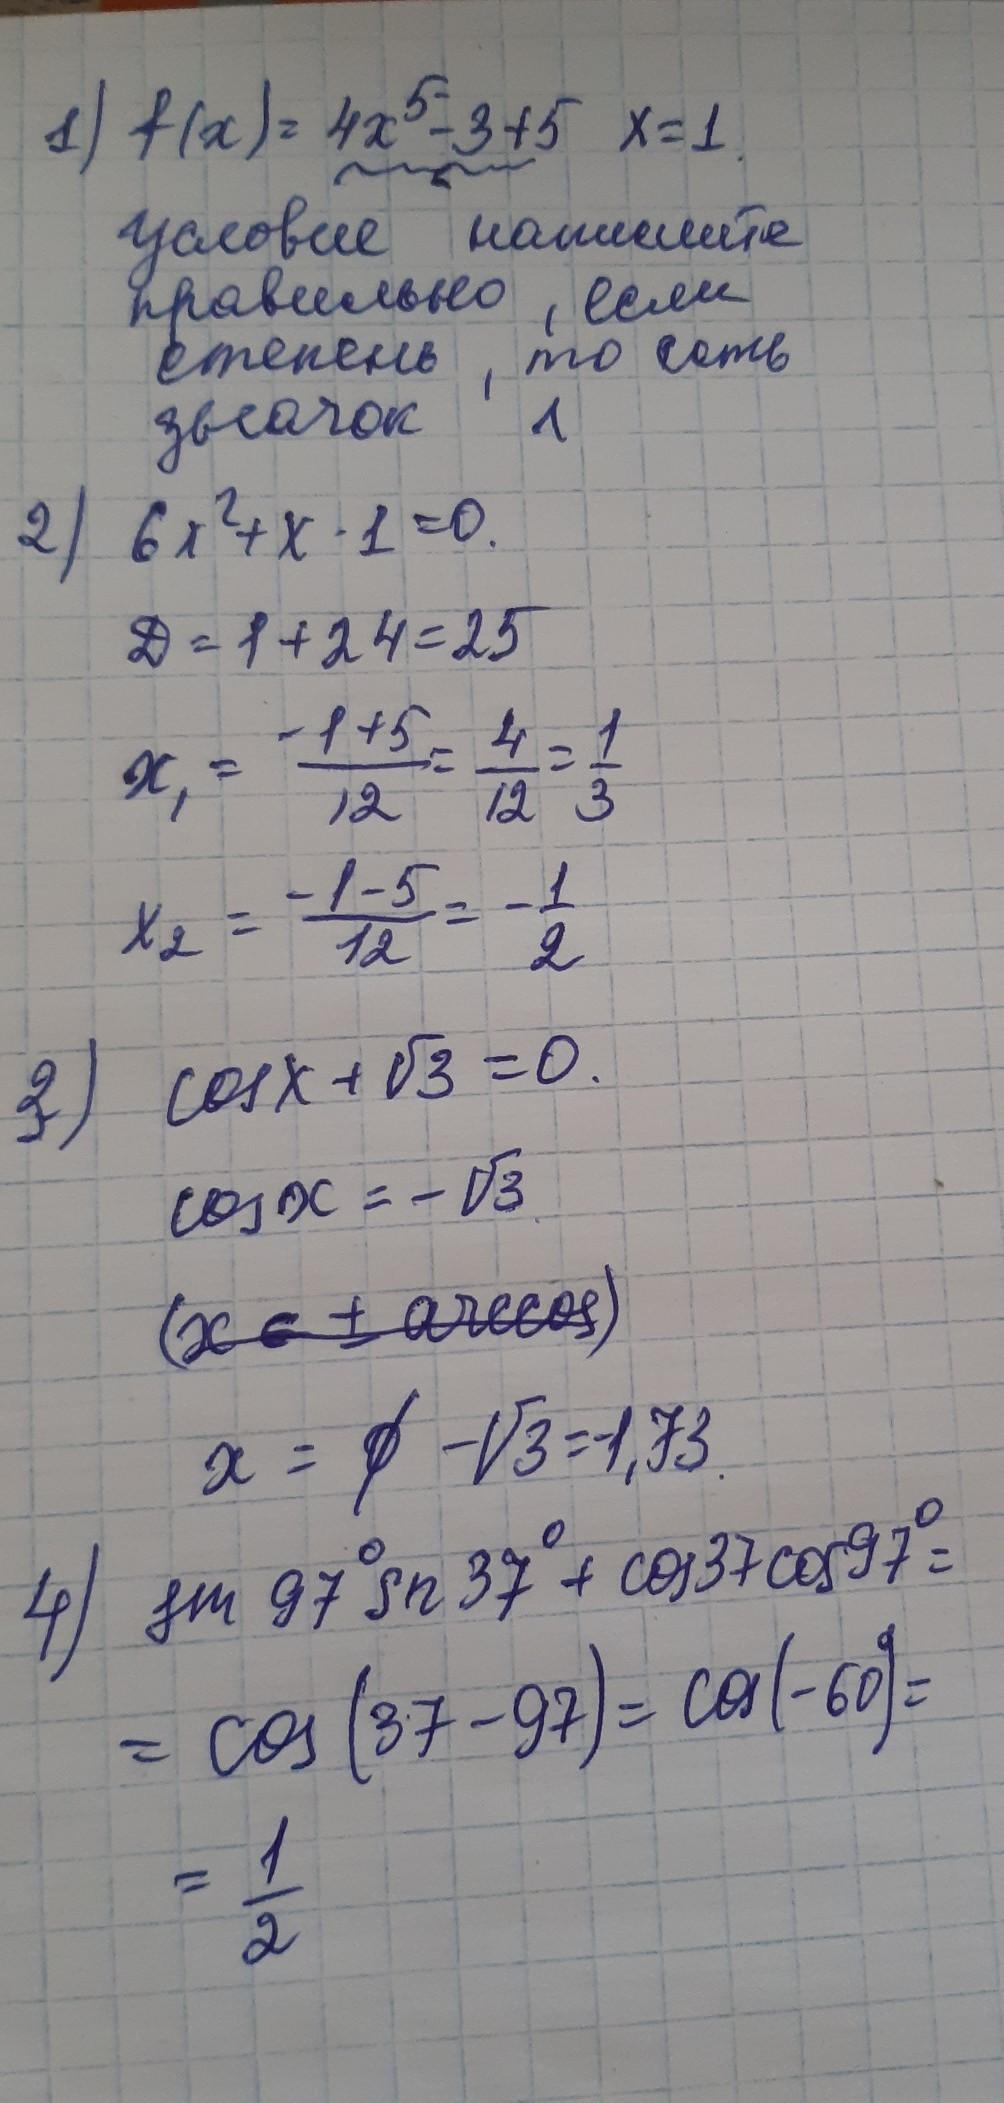 1) f(x) = 4x⁵ - 3 + 5 x = 1.
условие напишите
правильно, если
степень, то есть
значок ^
2) 6x² + x - 1 = 0.
Д = 1 + 24 = 25
x₁ = (-1+5)/12 = 4/12 = 1/3
x₂ = (-1-5)/12 = -1/2
3) cos x + √3 = 0.
cos x = -√3
(x = ± arccos)
x = ∅ -√3 = -1,73.
4) sin 97° sin 37° + cos 37 cos 97° =
= cos (37 - 97) = cos (-60°) =
= 1/2